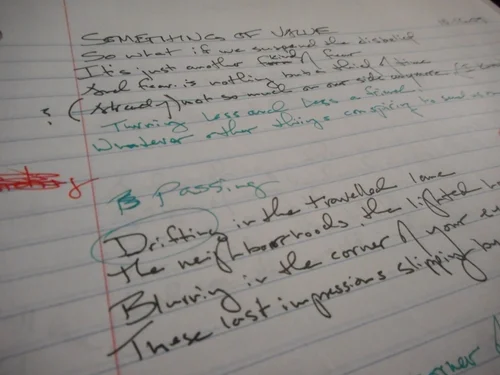 SOMETHINGS OF VALUE
So what if we suspend the disbelief
It's just another fear
And fear is nothing but a thief / time
? (Already) not so much on our side anymore
Turning less and less a friend
Whatever other things conspiring to
B Passing
Drifting in the travelled lane
The neighboorhoods the lighted
Blurring in the corner of your
These last impressions slipping